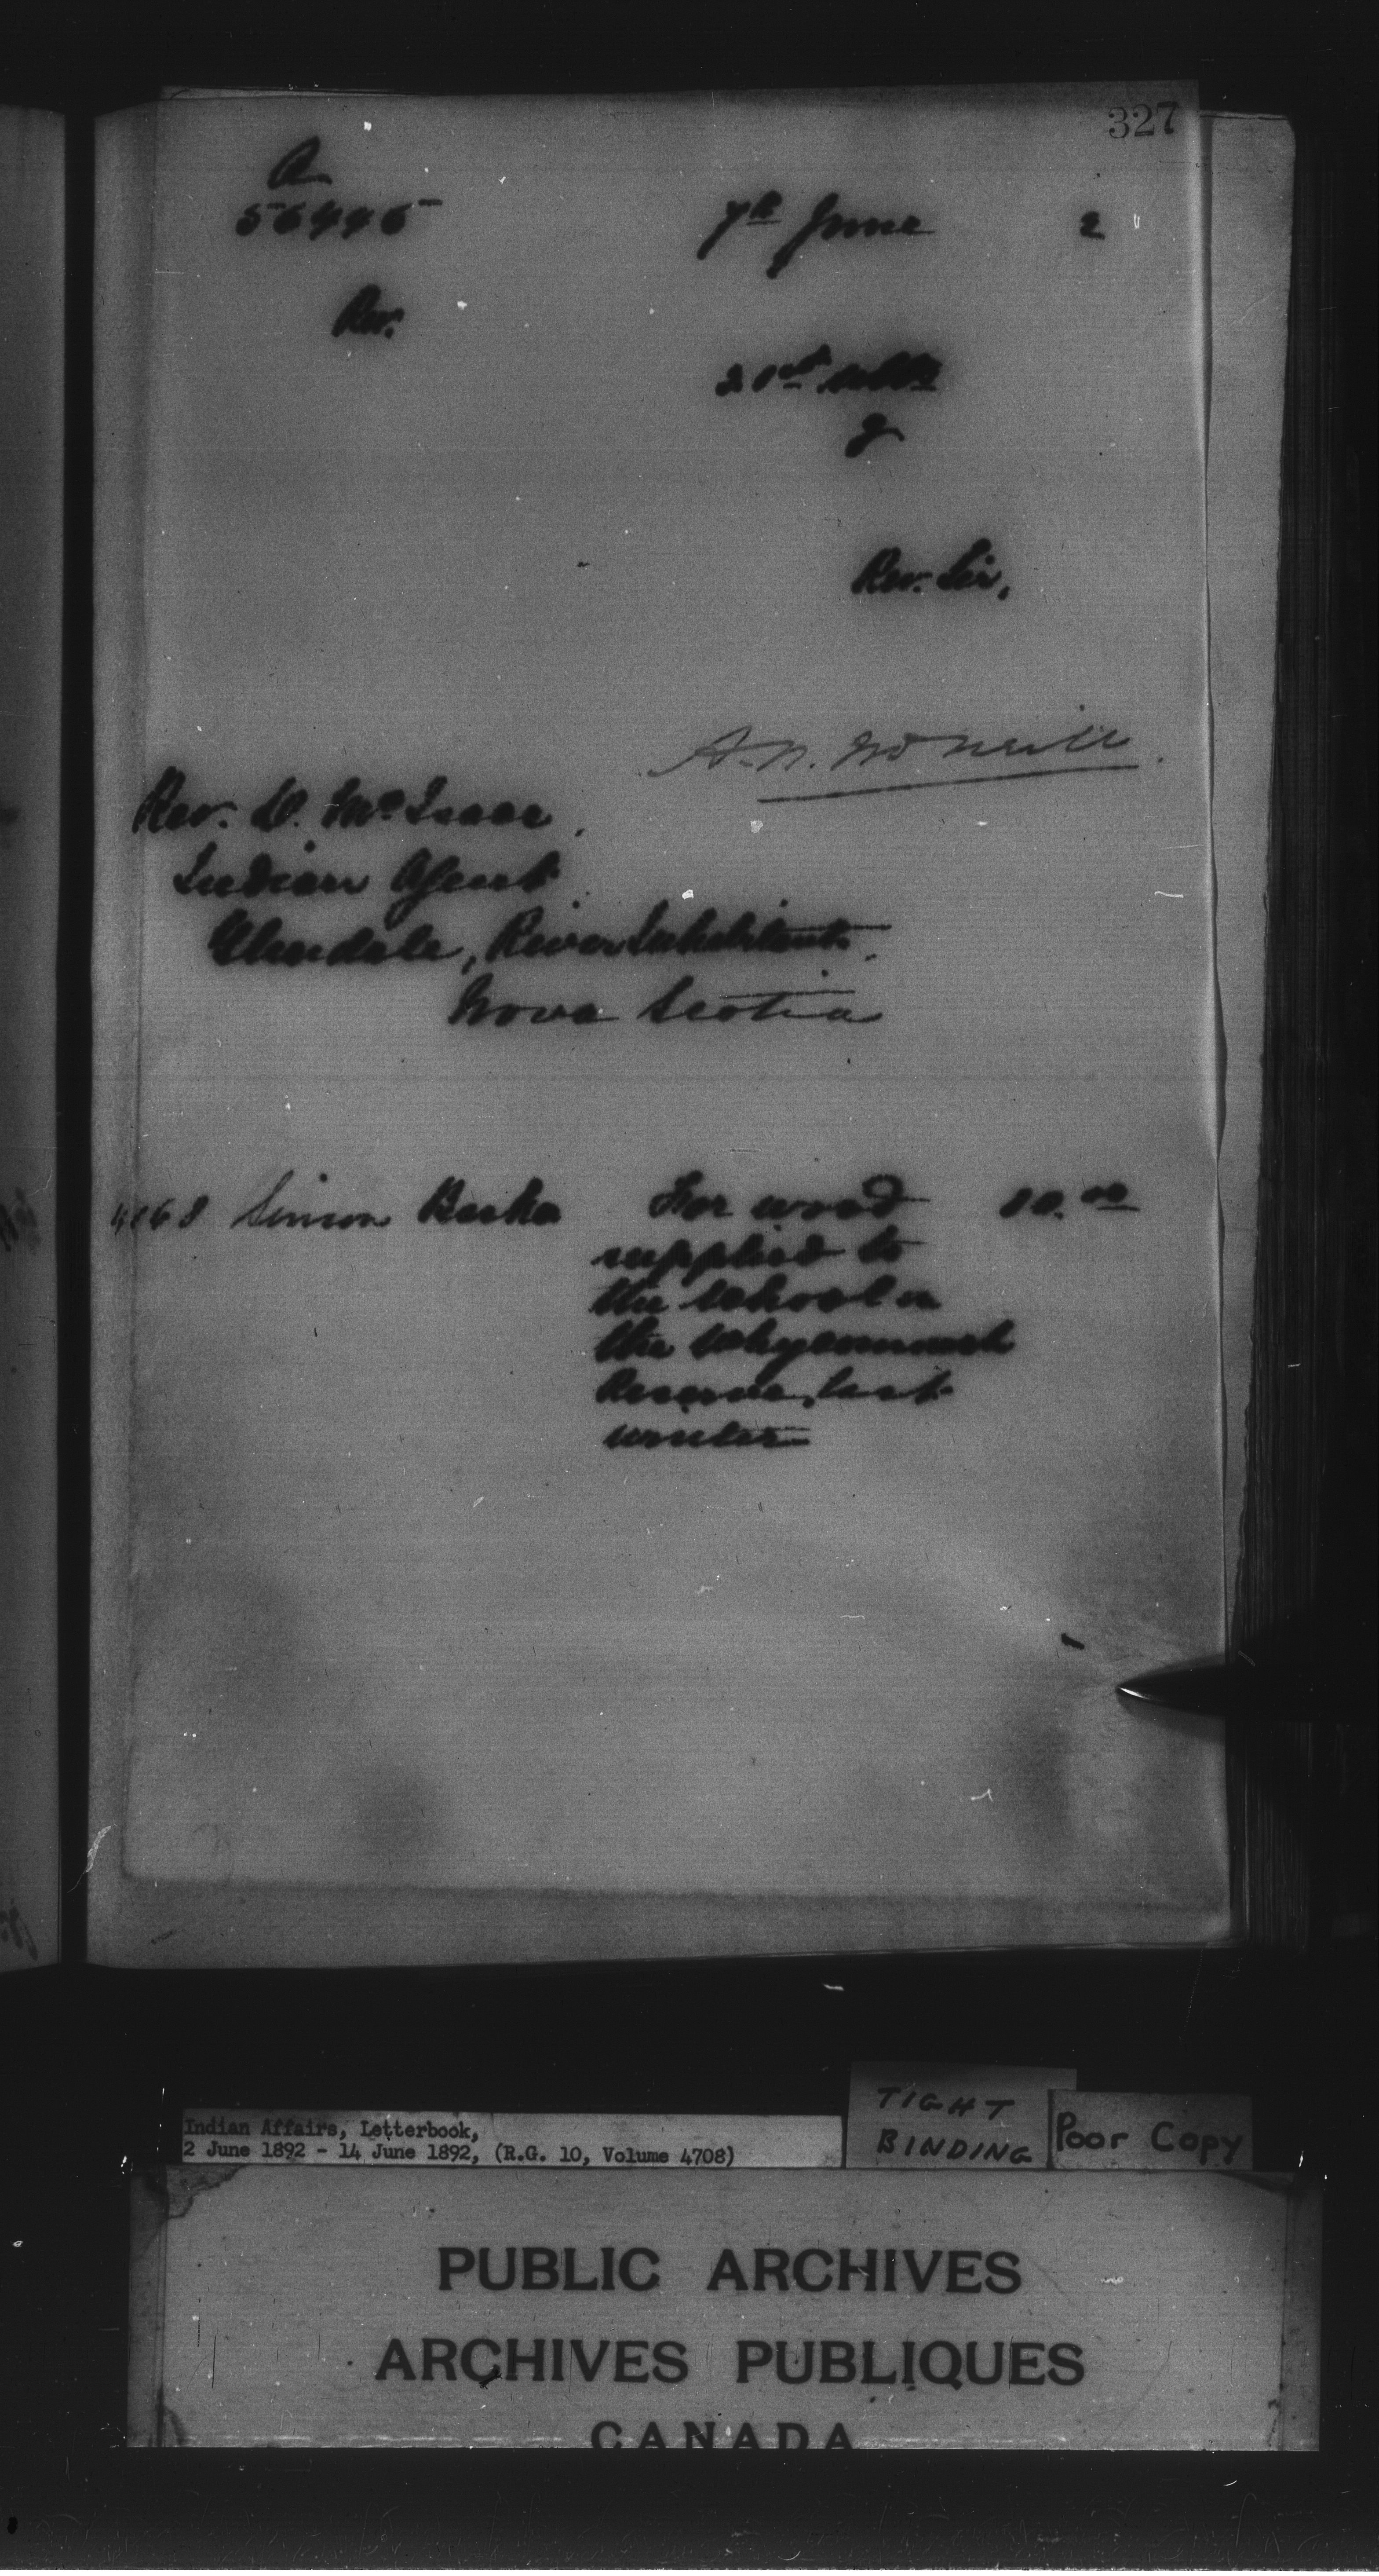 327
A
56446
7th June 2
Rev.
21st ulto
Rev. Sir,
A. N. McNeill
Rev. D. McIsaac,
Indian Agent
Glendale, River Inhabitants,
Nova Scotia
Simon Basha For wood 10.00
supplied to
the school on
the Whycocomagh
Reserve, last
winter
Indian Affairs, Letterbook,
2 June 1892 - 14 June 1892, (R.G. 10, Volume 4708)
TIGHT
BINDING
Poor Copy
PUBLIC ARCHIVES
ARCHIVES PUBLIQUES
CANADA